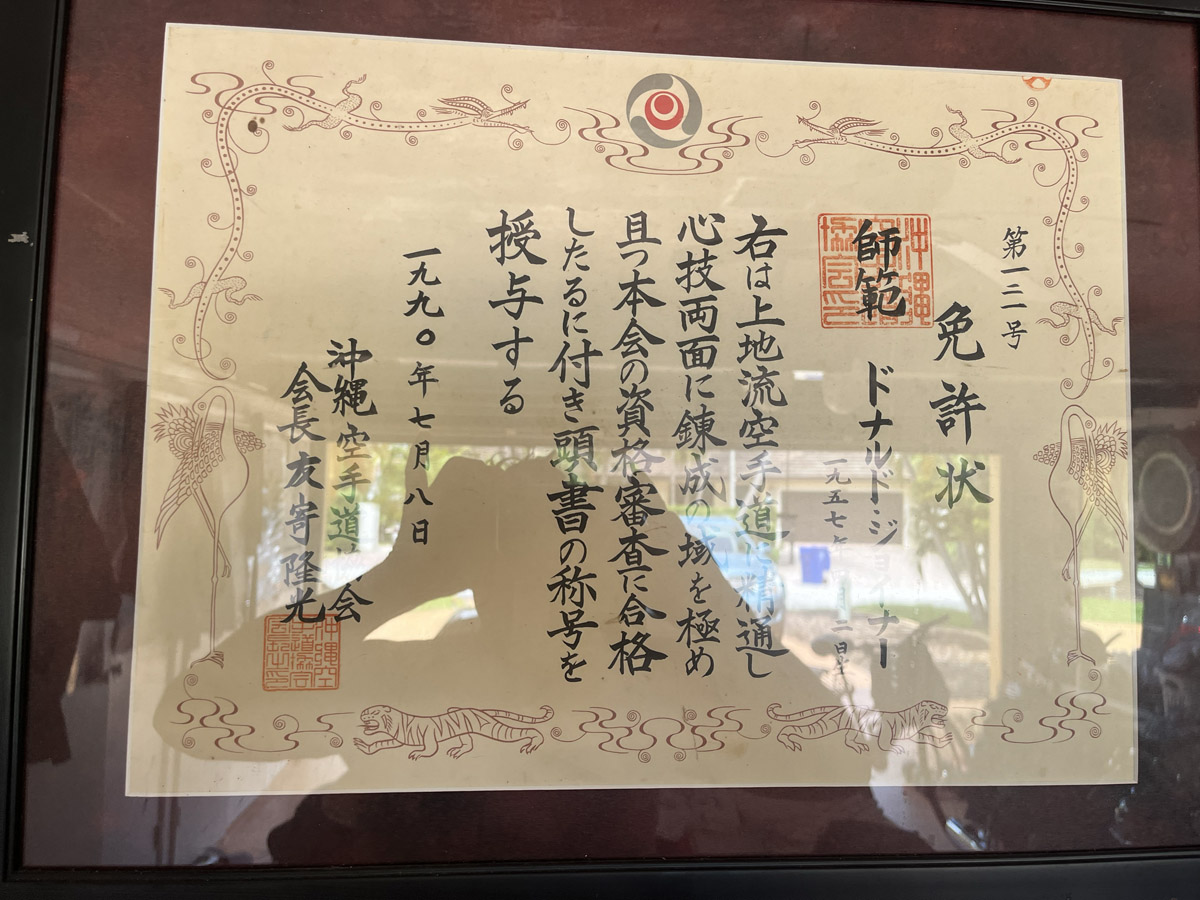 第一二一号
免許状
師範
ドナルド・ジョイナー
一九五七年 月二日生
右は上地流空手道に精通し
心技両面に錬成の域を極め
且つ本会の資格審査に合格
したるに付き頭書の称号を
授与する
一九九〇年七月八日
沖縄空手道協会
会長友寄隆光